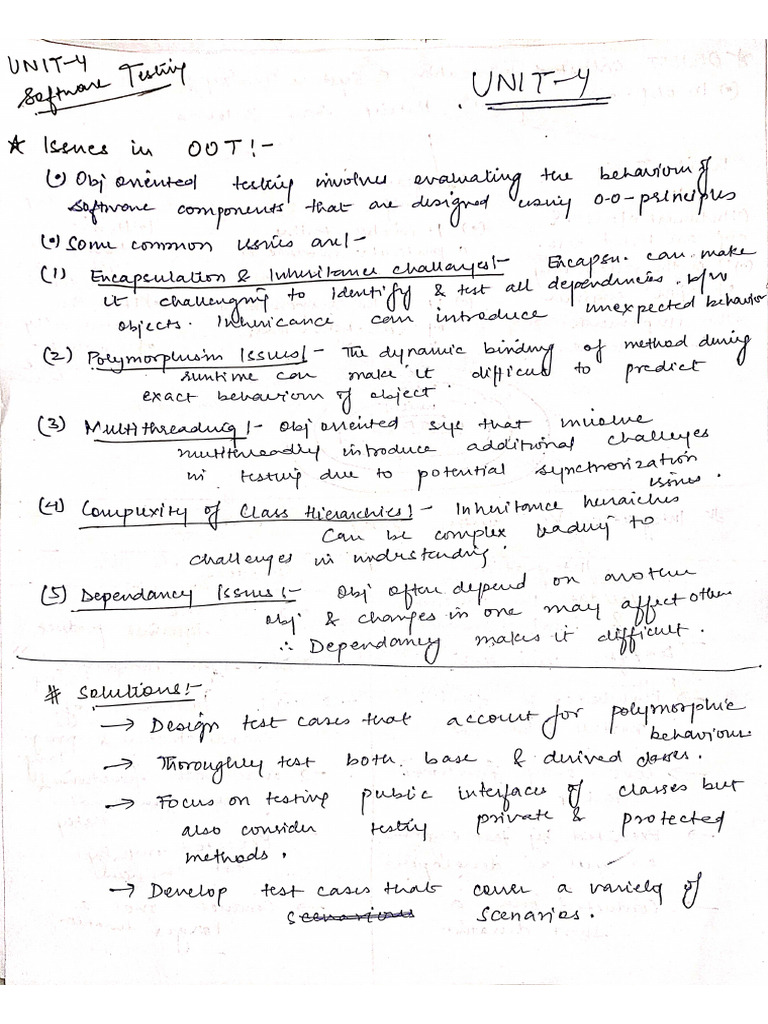 UNIT-4
Software Testing
UNIT-4
* Issues in OOT!-
(•) Obj oriented testing involves evaluating the behaviour of
software components that are designed using O-O-principles
(•) Some common issues are!-
(1) Encapsulation & Inheritance challenges!- Encapsu. can make
it challenging to identify & test all dependencies. b/w
objects. Inhericance can introduce unexpected behavior
(2) Polymorphism Issues!- The dynamic binding of method during
runtime can make it difficult to predict
exact behaviour of object.
(3) Multithreading!- Obj oriented sys that involve
multithreading introduce additional challenges
in testing due to potential synchronization
issues.
(4) Complexity of Class Hierarchies!- Inheritance heraiches
Can be complex leading to
challenges in understanding.
(5) Dependancy Issues!- Obj often depend on another
obj & changes in one may affect other
∴ Dependancy makes it difficult.
# Solutions!-
→ Design test cases that account for polymorphic
behaviour.
→ Thoroughley test both base & derived classes.
→ Focus on testing public interfaces of classes but
also consider testing private & protected
methods.
→ Develop test cases that cover a variety of
scenarios scenarios.